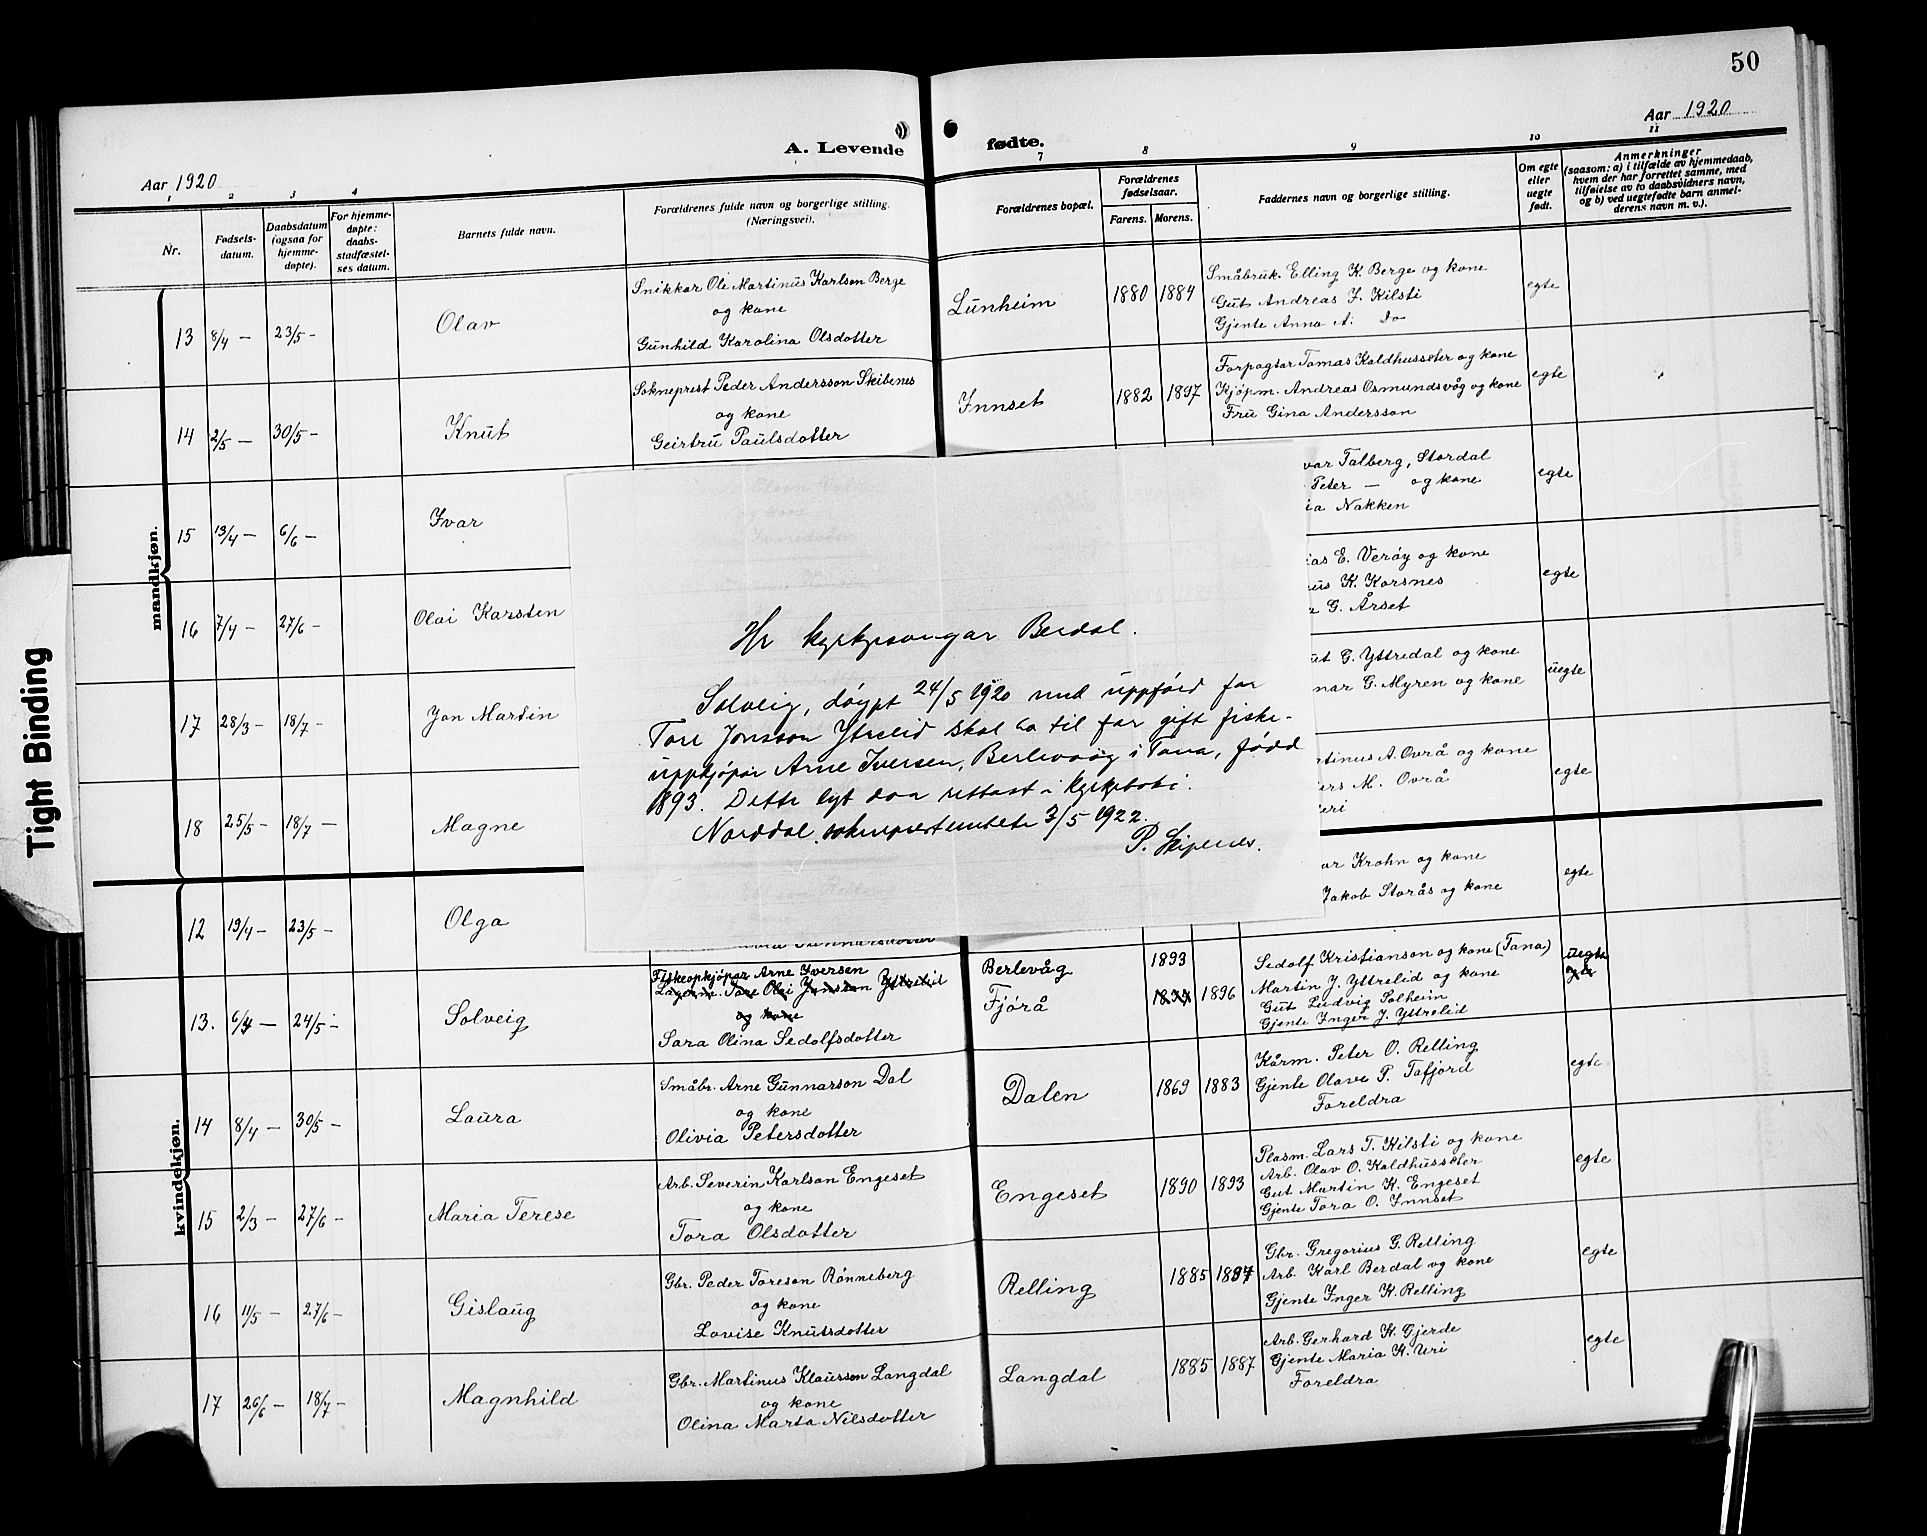 50
Aar 1920
A. Levende
fødte.
Aar 1920
1 2 3 4
7 8 9 10 11
Nr.
Fødsels-
datum.
Daabsdatum
(ogsaa for
hjemme-
døpte).
For hjemme-
døpte:
daabs-
stadfæstel-
ses datum.
Barnets fulde navn.
Forældrenes fulde navn og borgerlige stilling.
(Næringsvei).
Forældrenes bopæl.
Forældrenes
fødselsaar.
Farens. Morens.
Faddernes navn og borgerlige stilling.
Om egte
eller
uegte
født.
Anmerkninger
(saasom: a) i tilfælde av hjemmedaab,
hvem der har forrettet samme, med
tilføielse av to daabsvidners navn,
og b) ved uegtefødte barn anmel-
derens navn m. v.).
mandkjøn.
13 8/4 — 23/5 — Olav
Snikkar Ole Martinus Karlson Berge
og kone
Gunhild Karolina Olsdotter
Lunheim 1880 1884
Småbruk. Elling K. Berge og kone
Gut Andreas J. Kilsti
Gjente Anna A. Do
egte
14 2/5 — 30/5 — Knut
Sokneprest Peder Andersson Skibenes
og kone
Geirtru Paulsdotter
Innset 1882 1897
Forpagtar Tomas Kaldhusseter og kone
Kjøpm. Andreas Osmundsvåg og kone
Fru Gina Andersson
egte
15 13/4 — 6/6 — Ivar
var Talberg, Stordal
Peter — og kone
ia Nakken
egte
16 7/4 — 27/6 — Olai Karsten
ias E. Verøy og kone
us K. Korsnes
G. Årset
egte
17 28/3 — 18/7 — Jon Martin
ut G. Yttredal og kone
nar G. Myren og kone
uegte
18 25/5 — 18/7 — Magne
rtinus A. Ovrå og kone
ers M. Ovrå
eri
egte
Hr kyrkjesongar Berdal.
Solveig, døypt 24/5 1920 med uppførd far
Tore Jonsson Ytrelid skal ha til far gift fiske-
uppkjøpar Arne Iversen, Berlevaag i Tana, fødd
1893. Dette lyt daa rettast i kyrkjeboki.
Norddal sokneprestembete 3/5 1922.
P. Skipenes.
kvindekjøn.
12 19/4 — 23/5 — Olga
ar Krohn og kone
Jakob Storås og kone
egte
13. 6/4 — 24/5 — Solveig
Fiskeopkjøpar Arne Iversen
Tore Olai Jonsson Yttrelid
og kone
Sara Olina Sedolfsdotter
Berlevåg
Fjørå
1893
1896
Sedolf Kristianson og kone (Tana)
Martin J. Yttrelid og kone
Gut Ludvig Solheim
Gjente Inger J. Yttrelid
uegte
egte
14 8/4 — 30/5 — Laura
Småbr. Arne Gunnarson Dal
og kone
Olivia Petersdotter
Dalen 1869 1883
Kårm. Peter O. Relling
Gjente Olave P. Tafjord
Foreldra
egte
15 2/3 — 27/6 — Maria Terese
Arb. Severin Karlson Engeset
og kone
Tora Olsdotter
Engeset 1890 1893
Plasm. Lars T. Kilsti og kone
Arb. Olav O. Kaldhusseter
Gut Martin K. Engeset
Gjente Tora O. Innset
egte
16 11/5 — 27/6 — Gislaug
Gbr. Peder Toreson Rønneberg
og kone
Lovise Knutsdotter
Relling 1885 1887
Gbr. Gregorius G. Relling
Arb. Karl Berdal og kone
Gjente Inger K. Relling
egte
17 26/6 — 18/7 — Magnhild
Gbr. Martinus Klausson Langdal
og kone
Olina Marta Nilsdotter
Langdal 1885 1887
Arb. Gerhard K. Gjerde
Gjente Maria K. Uri
Foreldra
egte
Tight Binding